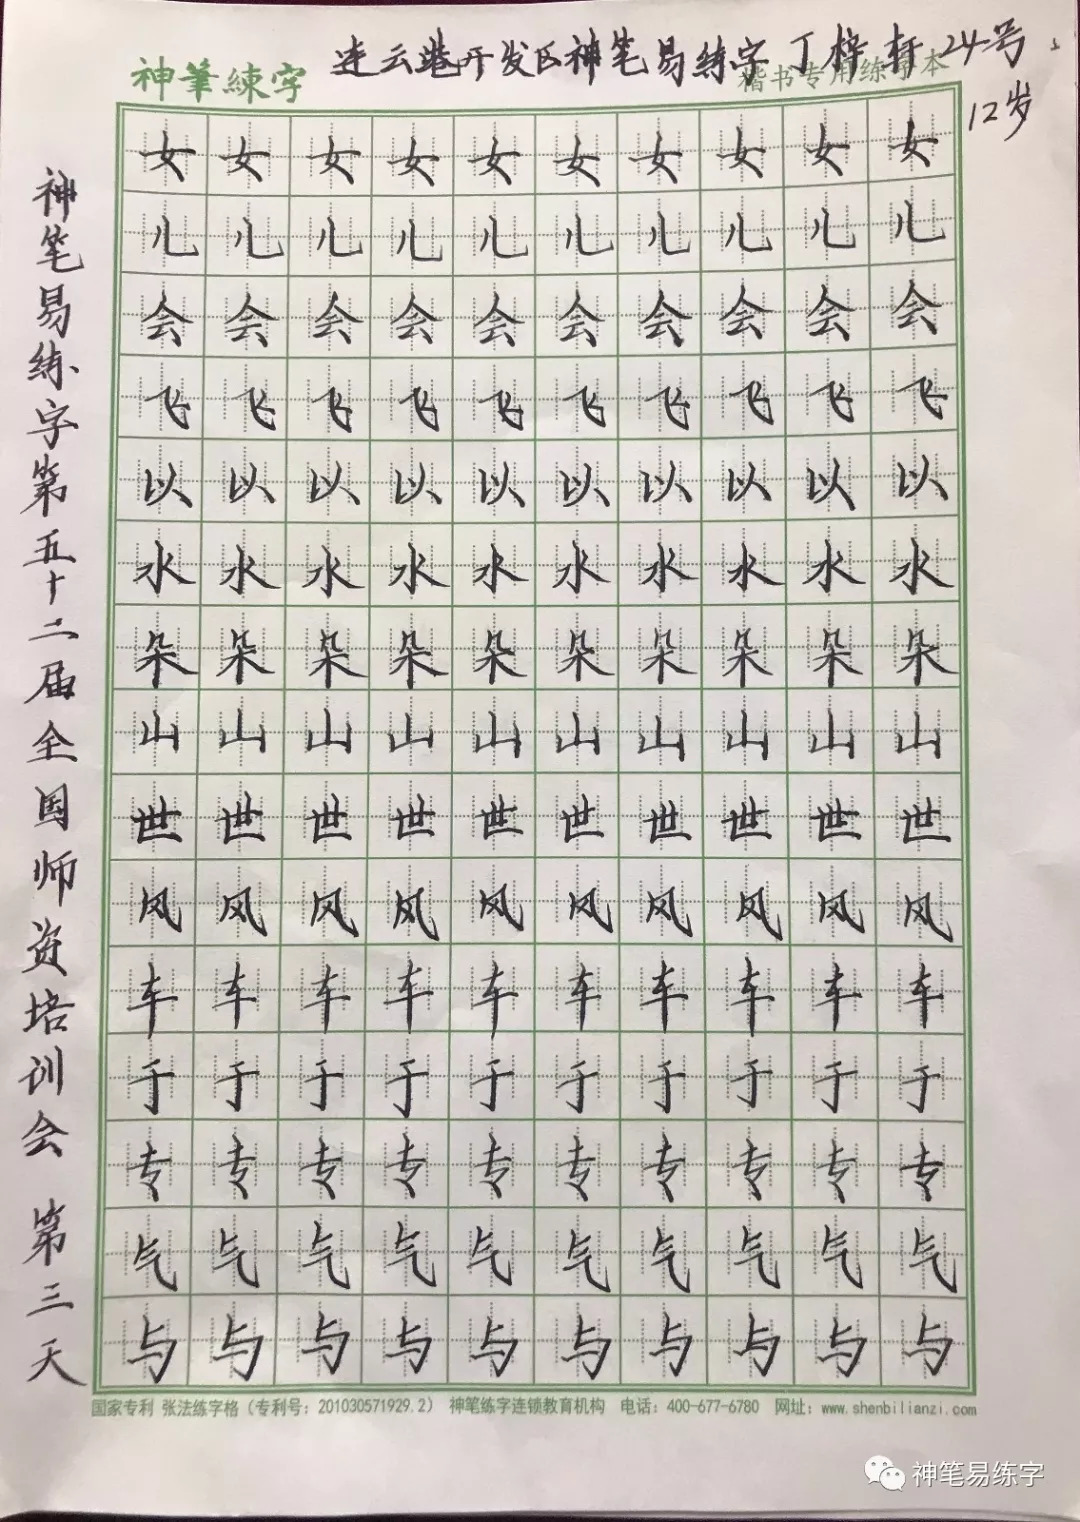 神筆練字
楷书专用练字本
连云港开发区神笔易练字 丁梓轩 24号
12岁
神笔易练字第五十二届全国师资培训会 第三天
女女女女女女女女女女
儿儿儿儿儿儿儿儿儿儿
会会会会会会会会会会
飞飞飞飞飞飞飞飞飞飞
以以以以以以以以以以
水水水水水水水水水水
朵朵朵朵朵朵朵朵朵朵
山山山山山山山山山山
世世世世世世世世世世
风风风风风风风风风风
车车车车车车车车车车
于于于于于于于于于于
专专专专专专专专专专
气气气气气气气气气气
与与与与与与与与与与
国家专利 张法练字格（专利号：201030571929.2） 神笔练字连锁教育机构 电话：400-677-6780 网址：www.shenbilianzi.com
神笔易练字